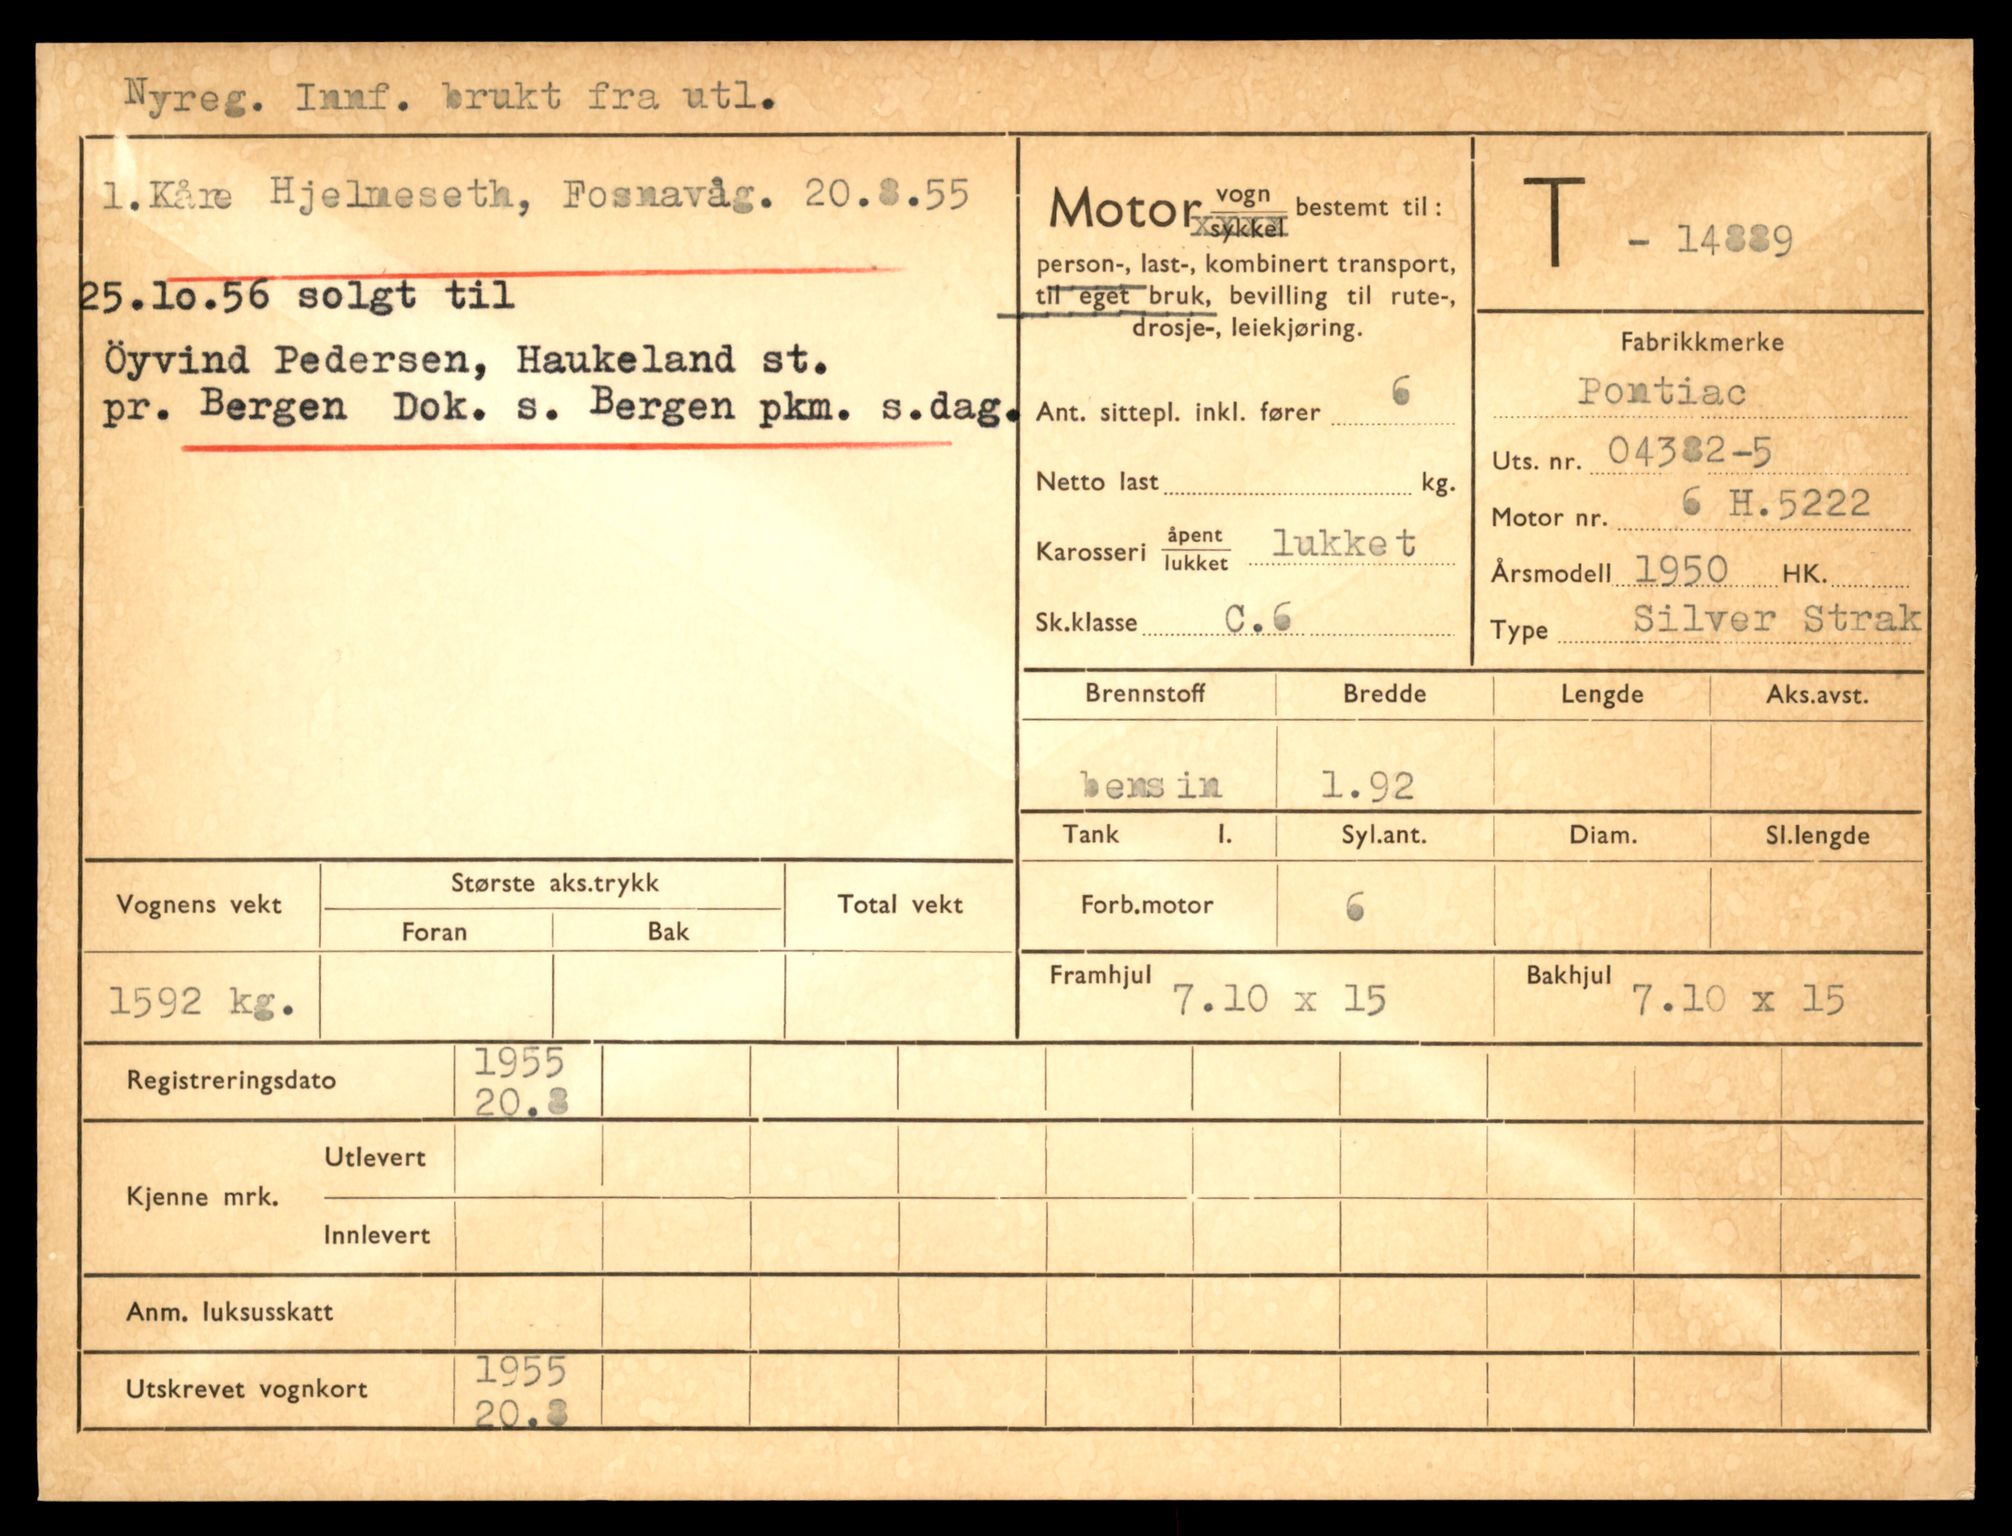 Nyreg. Innf. brukt fra utl.
1. Kåre Hjelmeseth, Fosnavåg. 20.8.55
25.1o.56 solgt til
Öyvind Pedersen, Haukeland st.
pr. Bergen Dok. s. Bergen pkm. s.dag.
Motor vogn/sykkel bestemt til:
person-, last-, kombinert transport,
til eget bruk, bevilling til rute-,
drosje-, leiekjøring.
Ant. sittepl. inkl. fører 6
Netto last kg.
Karosseri åpent/lukket lukket
Sk.klasse C.6
T - 14889
Fabrikkmerke
Pontiac
Uts. nr. 04382-5
Motor nr. 6 H.5222
Årsmodell 1950 HK.
Type Silver Strak
Brennstoff Bredde Lengde Aks.avst.
bensin 1.92
Tank l. Syl.ant. Diam. Sl.lengde
Forb.motor 6
Framhjul 7.10 x 15 Bakhjul 7.10 x 15
Vognens vekt Største aks.trykk Total vekt
Foran Bak
1592 kg.
Registreringsdato 1955
20.8
Kjenne mrk. Utlevert
Innlevert
Anm. luksusskatt
Utskrevet vognkort 1955
20.8